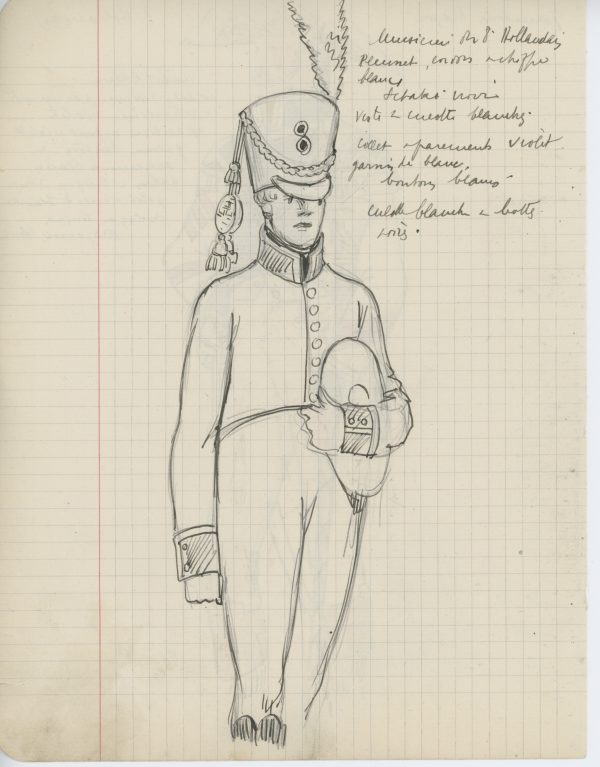 Musicien du 8e Hollandais
Plumet, cordon
blancs
Schako noir
Veste & culotte blanches
Collet & parements violet
garnis de blanc.
boutons blancs
Culotte blanche & bottes
noires.